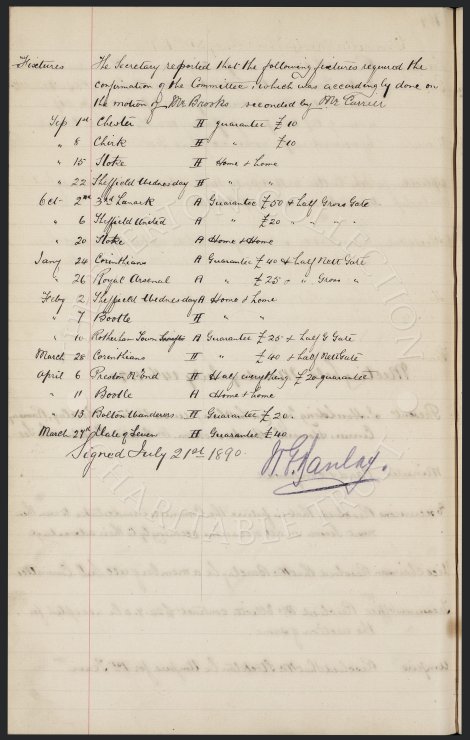 Fixtures The Secretary reported that the following fixtures required the
confirmation of the Committee which was accordingly done on
the motion of Mr Brooks seconded by Mr Currier
Sep 1st Chester H guarantee £10
" 8 Chirk H " £10
" 15 Stoke H Home & home
" 22 Sheffield Wednesday H " "
Oct 2nd 3rd Lanark A Guarantee £50 & half Gross Gate
" 6 Sheffield United A " £20 " " " "
" 20 Stoke A Home & Home
Jany 24 Corinthians A Guarantee £40 & half Nett Gate
" 26 Royal Arsenal A " £25 " " Gross "
Feby 2 Sheffield Wednesday A Home & home
" 7 Bootle H " "
" 10 Rotherham Town A Guarantee £25 & half G Gate
March 28 Corinthians H " £40 & half Nett Gate
April 6 Preston N. End H Half everything £20 guarantee
" 11 Bootle A Home & home
" 13 Bolton Wanderers H Guarantee £20.
March 27th Vale of Leven H Guarantee £40
Signed July 21st 1890.
CHARITABLE TRUST